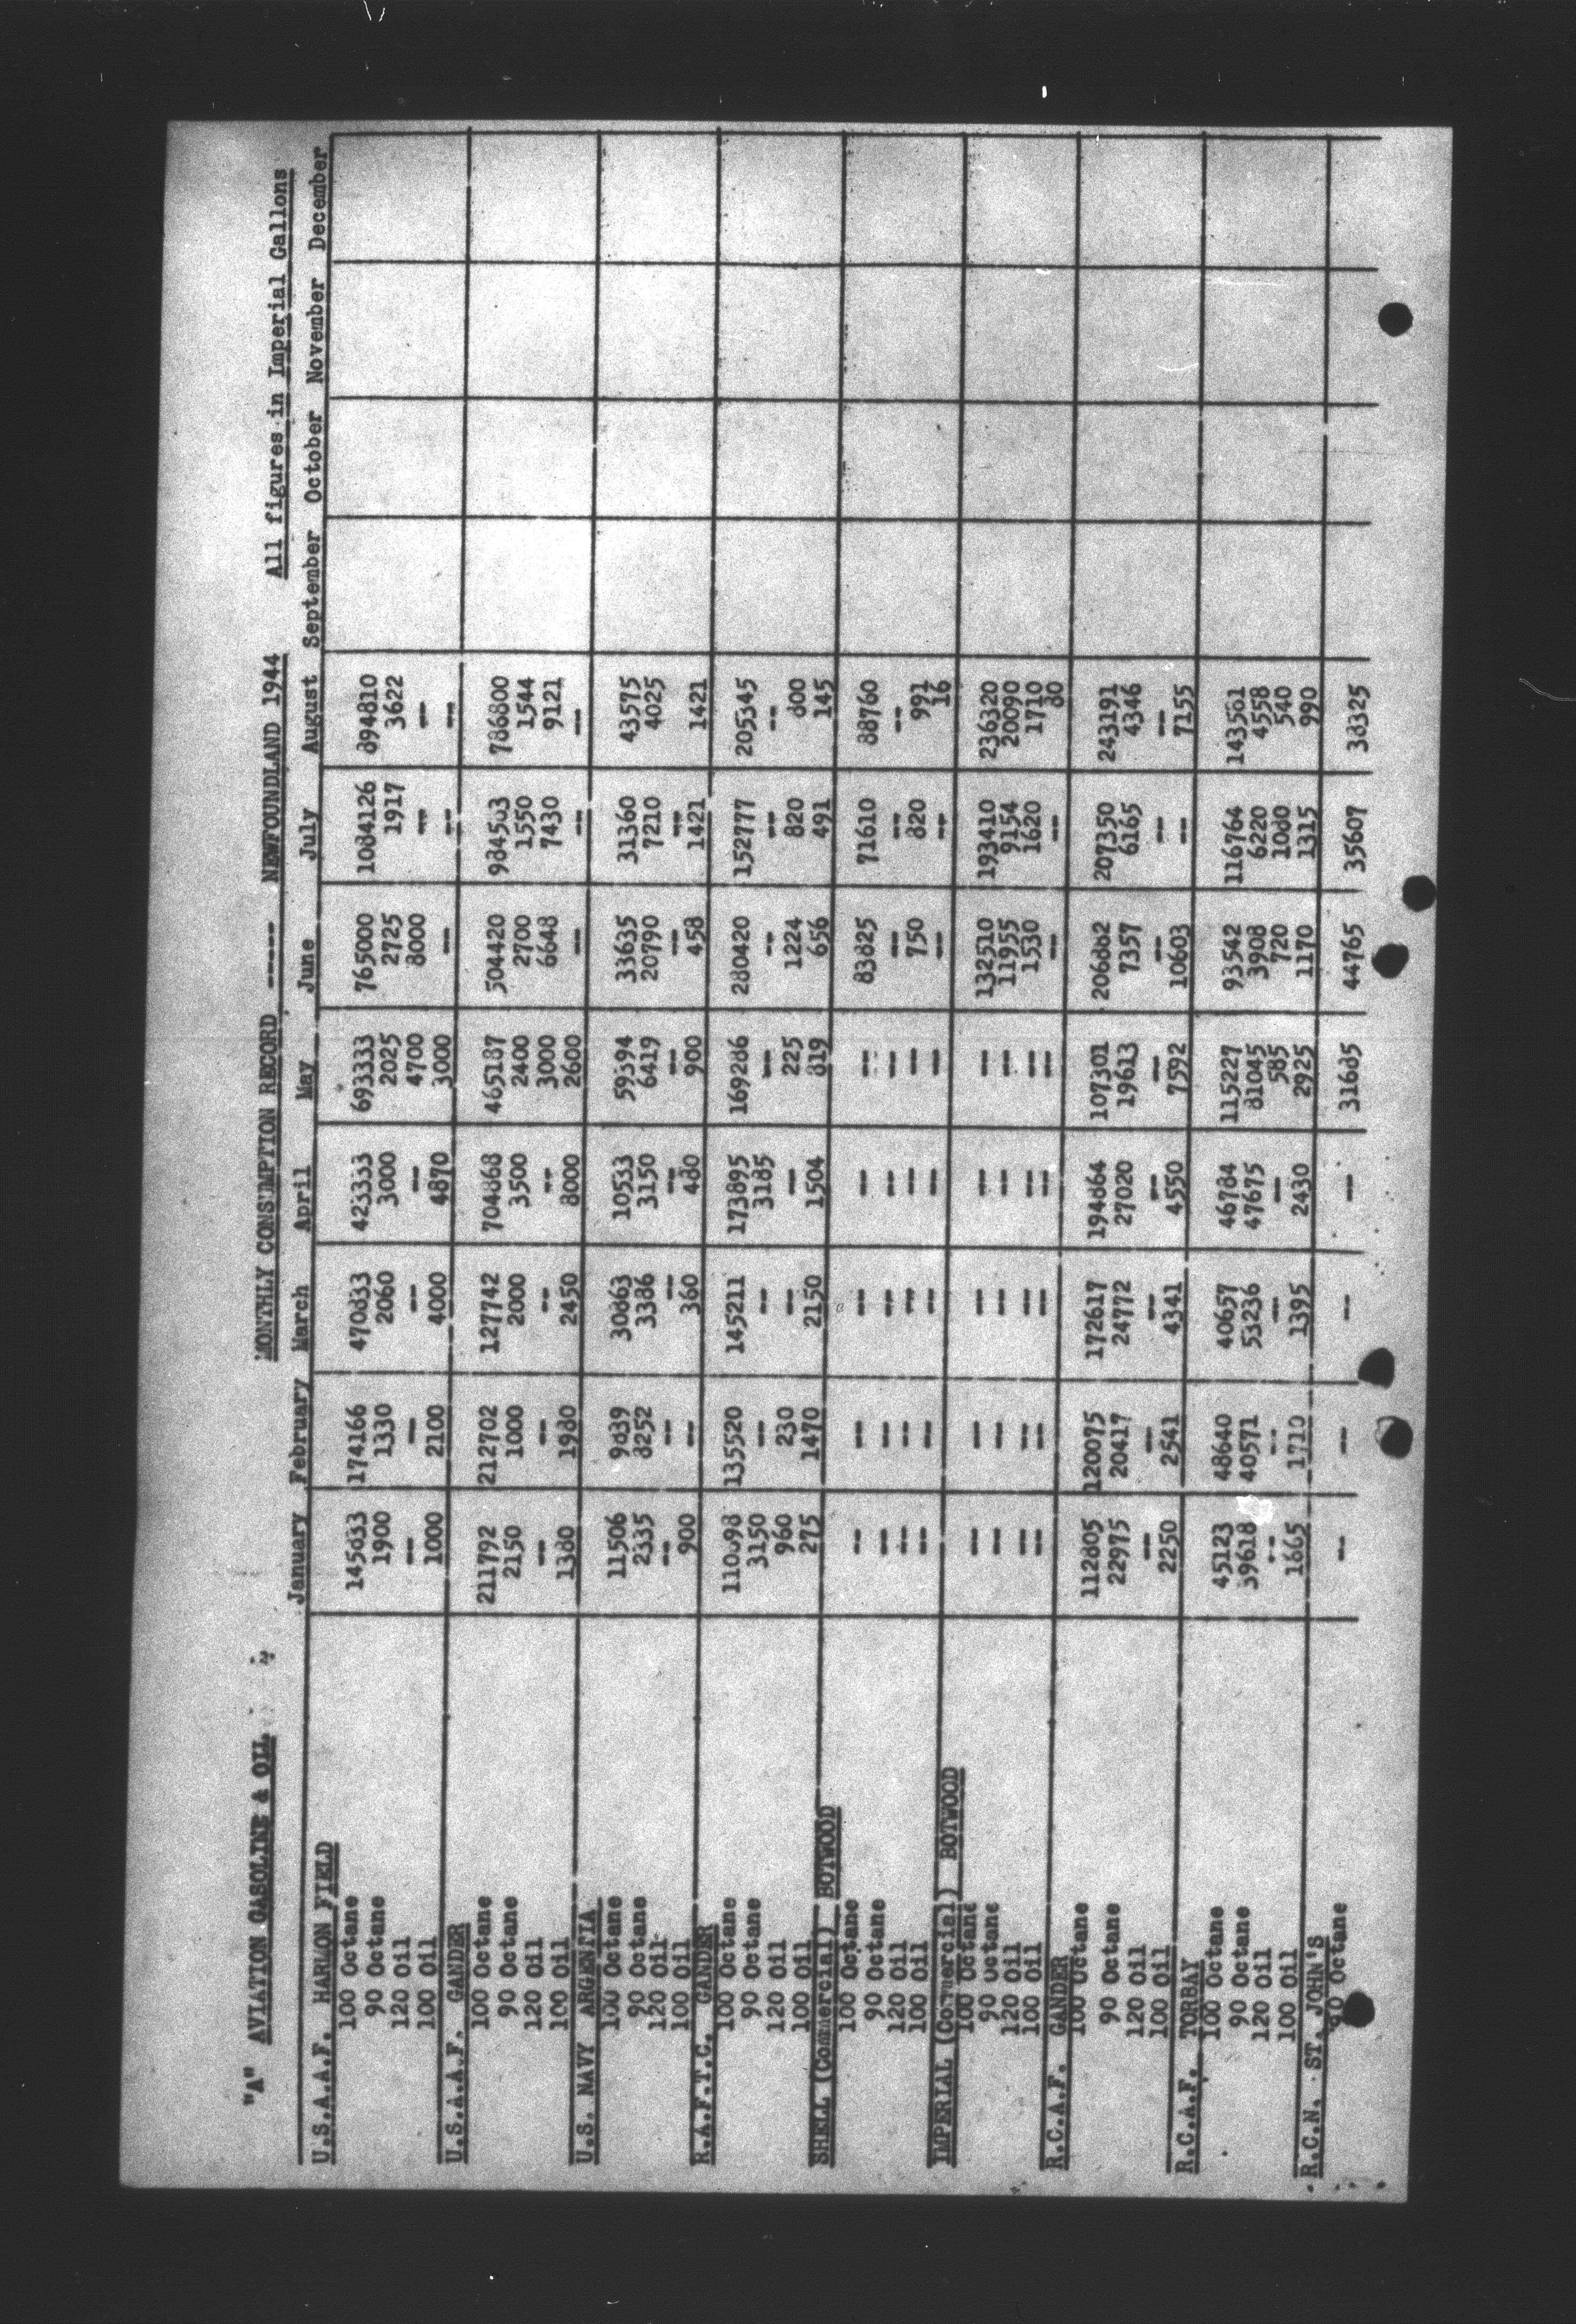 "A" AVIATION GASOLINE & OIL MONTHLY CONSUMPTION RECORD ----- NEWFOUNDLAND 1944 All figures in Imperial Gallons
January February March April May June July August September October November December
U.S.A.A.F. HARMON FIELD
100 Octane 145833 174166 470833 423333 693333 765000 1084126 894810
90 Octane 1900 1330 2060 3000 2025 2725 1917 3622
120 Oil -- -- -- -- 4700 8000 -- --
100 Oil 1000 2100 4000 4870 3000 -- -- --
U.S.A.A.F. GANDER
100 Octane 211792 212702 127742 704868 465187 504420 984503 786800
90 Octane 2150 1000 2000 3500 2400 2700 1550 1544
120 Oil -- -- -- -- 3000 6648 7430 9121
100 Oil 1380 1980 2450 8000 2600 -- -- --
U.S. NAVY ARGENTIA
100 Octane 11506 9839 30863 10533 59394 33635 31360 43575
90 Octane 2335 8252 3386 3150 6419 20790 7210 4025
120 Oil -- -- -- -- -- -- --
100 Oil 900 -- 360 480 900 458 1421 1421
R.A.F.T.C. GANDER
100 Octane 135520 145211 173895 169286 280420 152777 205345
90 Octane 3150 -- -- 3185 -- -- -- --
120 Oil 960 230 -- -- 225 1224 820 800
100 Oil 275 1470 2150 1504 819 656 491 145
SHELL (Commercial) BOTWOOD
100 Octane -- -- -- -- -- 83825 71610 88760
90 Octane -- -- -- -- -- -- -- --
120 Oil -- -- -- -- -- 750 820 991
100 Oil -- -- -- -- -- -- -- 16
IMPERIAL (Commercial) BOTWOOD
100 Octane -- -- -- -- -- 132510 193410 236320
90 Octane -- -- -- -- -- 11955 9154 20090
120 Oil -- -- -- -- -- 1530 1620 1710
100 Oil -- -- -- -- -- -- -- 80
R.C.A.F. GANDER
100 Octane 112805 120075 172617 194864 107301 206882 207350 243191
90 Octane 22975 20417 24772 27020 19613 7357 6165 4346
120 Oil -- -- -- -- -- -- -- --
100 Oil 2250 2541 4341 4550 7592 10603 -- 7155
R.C.A.F. TORBAY
100 Octane 45123 48640 40657 46784 115227 93542 116764 143581
90 Octane 39618 40571 53236 47675 81045 3908 6220 4558
120 Oil -- -- -- -- 585 720 1080 540
100 Oil 1665 1710 1395 2430 2925 1170 1315 990
R.C.N. ST. JOHN'S
90 Octane -- -- -- -- 31685 44765 35607 38325